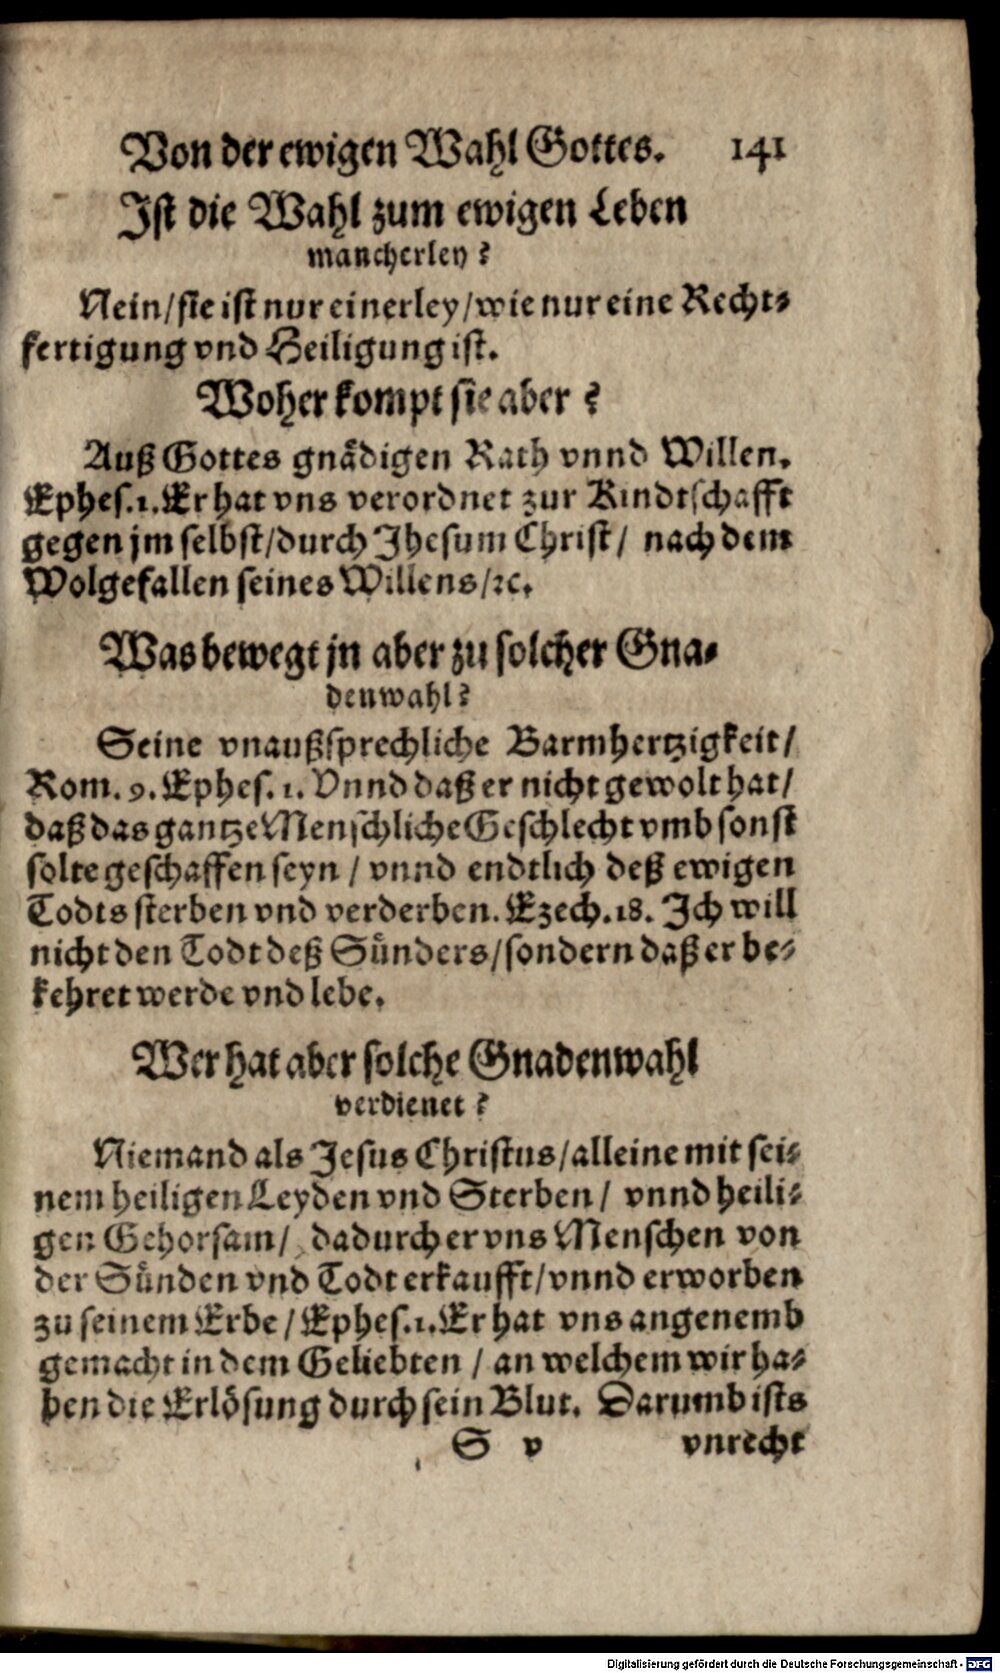 Von der ewigen Wahl Gottes. 141
Ist die Wahl zum ewigen Leben
mancherley?
Nein/sie ist nur einerley/wie nur eine Recht-
fertigung vnd Heiligung ist.
Woher kompt sie aber?
Auß Gottes gnädigen Rath vnnd Willen.
Ephes.1. Er hat vns verordnet zur Kindtschafft
gegen jm selbst/durch Jhesum Christ/ nach dem
Wolgefallen seines Willens/ꝛc.
Was bewegt jn aber zu solcher Gna-
denwahl?
Seine vnaußsprechliche Barmhertzigkeit/
Rom. 9. Ephes. 1. Vnnd daß er nicht gewolt hat/
daß das gantze Menschliche Geschlecht vmb sonst
solte geschaffen seyn / vnnd endtlich deß ewigen
Todts sterben vnd verderben. Ezech.18. Ich will
nicht den Todt deß Sünders/sondern daß er be-
kehret werde vnd lebe.
Wer hat aber solche Gnadenwahl
verdienet?
Niemand als Jesus Christus/alleine mit sei-
nem heiligen Leyden vnd Sterben/ vnnd heili-
gen Gehorsam/ dadurch er vns Menschen von
der Sünden vnd Todt erkaufft/vnnd erworben
zu seinem Erbe / Ephes.1. Er hat vns angenemb
gemacht in dem Geliebten / an welchem wir ha-
ben die Erlösung durch sein Blut. Darumb ists
S v vnrecht
Digitalisierung gefördert durch die Deutsche Forschungsgemeinschaft - DFG